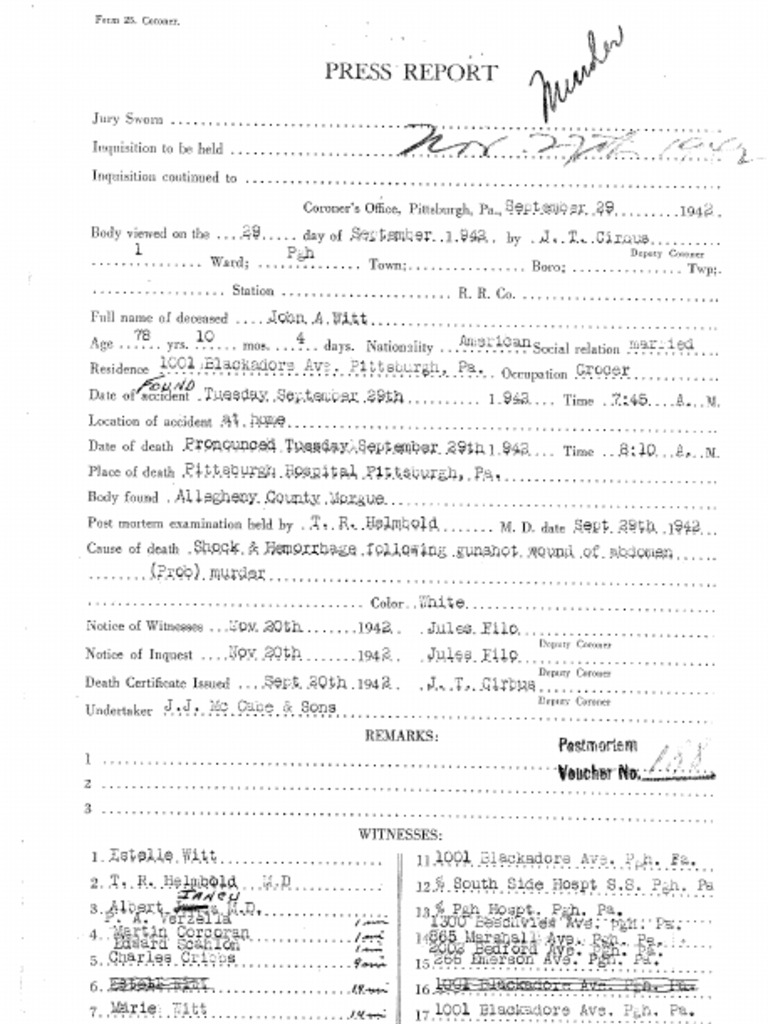 Form 25. Coroner.
Murder
PRESS REPORT
Jury Sworn
Inquisition to be held Nov. 27th 1942
Inquisition continued to
Coroner's Office, Pittsburgh, Pa., September 29 1942.
Body viewed on the 29 day of September 1.942 by J. T. Cirbus
Deputy Coroner
1 Ward; Pgh Town; Boro; Twp;
Station R. R. Co.
Full name of deceased John A Witt
Age 78 yrs. 10 mos. 4 days. Nationality American Social relation married
Residence 1001 Blackadore Ave. Pittsburgh, Pa. Occupation Grocer
FOUND
Date of accident Tuesday September 29th 1.942 Time 7:45 A. M.
Location of accident at home
Date of death Pronounced Tuesday September 29th 1.942 Time 8:10 A. M.
Place of death Pittsburgh Hospital Pittsburgh, Pa.
Body found Allegheny County Morgue
Post mortem examination held by T. R. Helmbold M. D. date Sept 29th 1942
Cause of death Shock & Hemorrhage following gunshot wound of abdomen
(Prob) murder
Color White
Notice of Witnesses Nov 20th 1942 Jules Filo
Deputy Coroner
Notice of Inquest Nov 20th 1942 Jules Filo
Deputy Coroner
Death Certificate Issued Sept 20th 1942 J. T. Cirbus
Deputy Coroner
Undertaker J.J. Mc Cabe & Sons
REMARKS:
Postmortem
Voucher No. 188
1
2
3
WITNESSES:
1. Estelle Witt
2. T. R. Helmbold M.D
3. Albert M.D.
P. A. Verzella
4. Martin Corcoran
Edward Scanlon
5. Charles Cribbs
6. Estell Witt
7. Marie Witt
11 1001 Blackadore Ave. Pgh. Pa.
12 % South Side Hospt S.S. Pgh. Pa
13 % Pgh Hospt. Pgh. Pa.
1300 Beechview Ave. Pgh. Pa.
14 865 Marshall Ave. Pgh. Pa.
2002 Bedford Ave. Pgh. Pa.
15 266 Emerson Ave. Pgh. Pa.
16 1001 Blackadore Ave. Pgh. Pa.
17 1001 Blackadore Ave. Pgh. Pa.